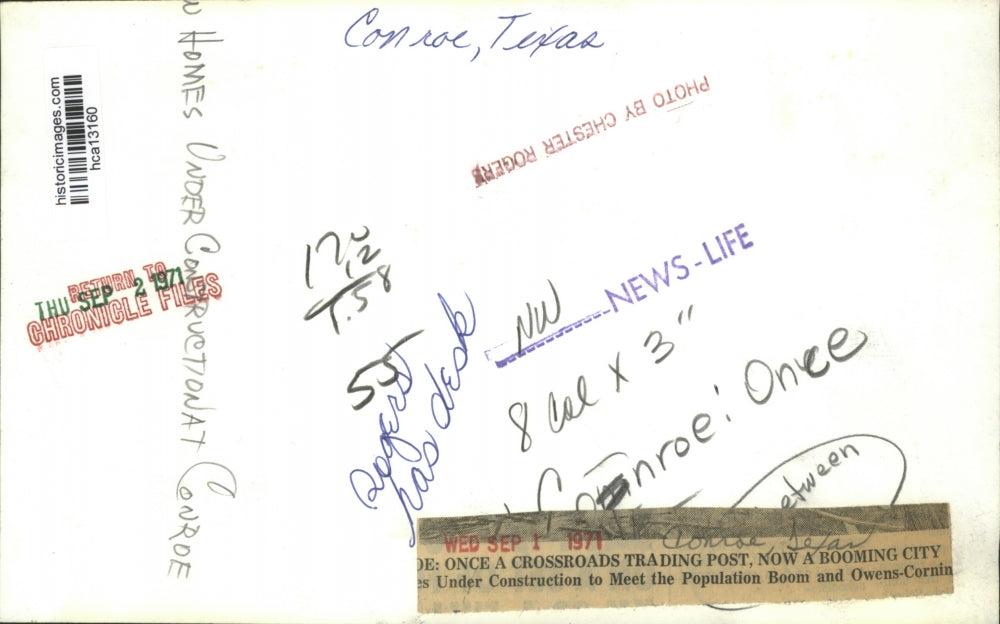 Conroe, Texas
PHOTO BY CHESTER ROGERS
historicimages.com
hca13160
HOMES UNDER CONSTRUCTION AT CONROE
RETURN TO
CHRONICLE FILES
THU SEP 2 1971
12
1.58
55
Rogers
has desk
NW
NEWS-LIFE
8 Col X 3"
Conroe: Once
etween
WED SEP 1 1971
Conroe Texas
OE: ONCE A CROSSROADS TRADING POST, NOW A BOOMING CITY
es Under Construction to Meet the Population Boom and Owens-Cornin